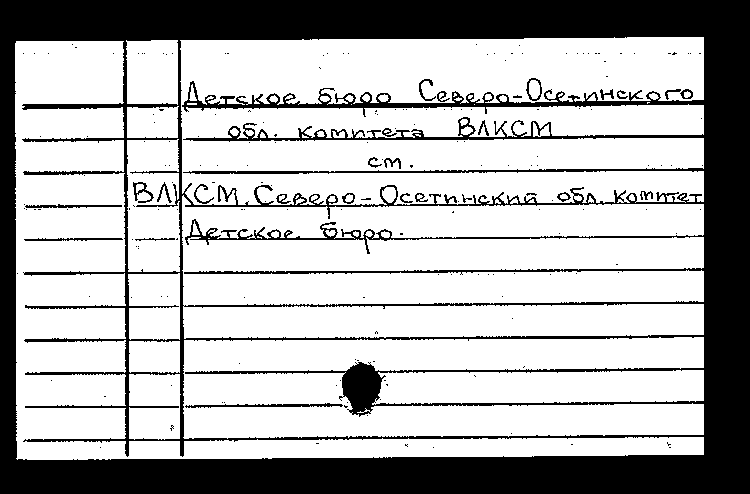 Детское бюро Северо-Осетинского
обл. комитета ВЛКСМ
см.
ВЛКСМ. Северо-Осетинский обл. комитет
Детское бюро.